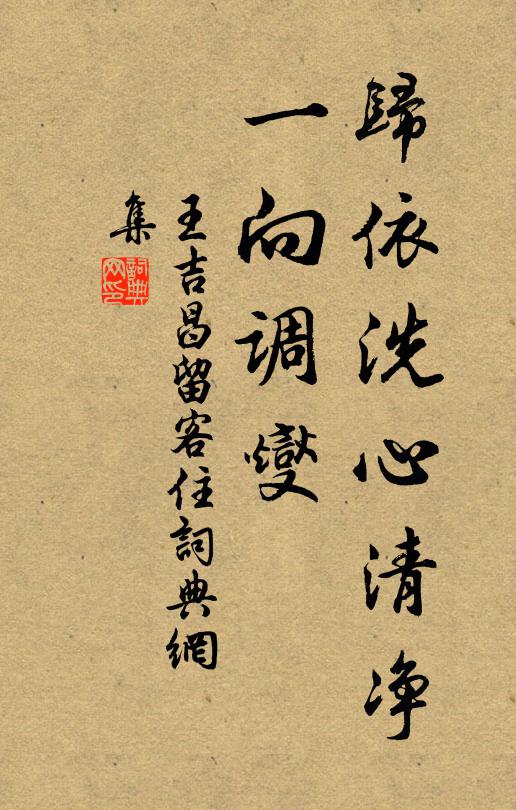 歸依洗心清净
一向調燮
王吉昌留客住詞典網
集
詞典
网印